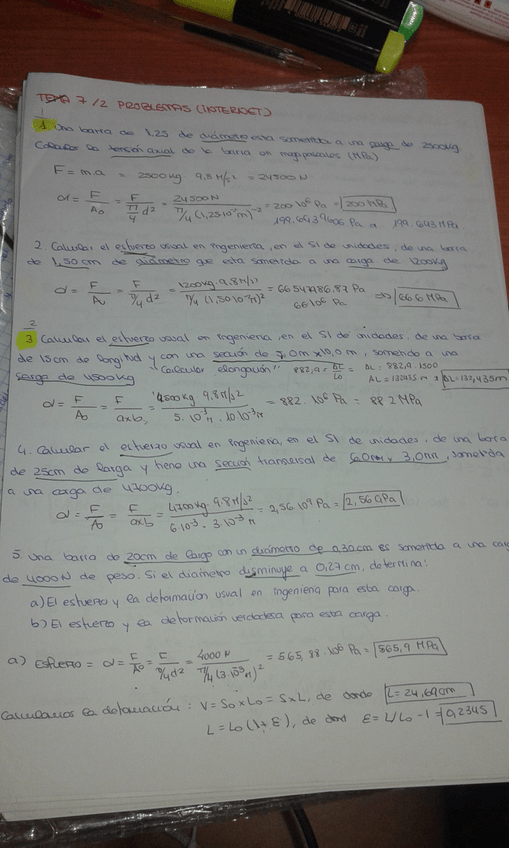 TEMA 7/2 PROBLEMAS (INTERNET)
1. Una barra de 1,25 de diámetro esta sometida a una carga de 2500kg
Calcular la tensión axial de la barra en megapascales (MPa)
F = m.a = 2500kg 9,8 m/s² = 24500N
σ = F/A₀ = F/(π/4 d²) = 24500N/(π/4 (1,25 10⁻²m)⁻²) = 200 10⁶ Pa = 200 MPa
199,643 MPa
2. Calcular el esfuerzo usual en ingenieria, en el SI de unidades, de una barra
de 1,50cm de diámetro que esta sometida a una carga de 1200kg
σ = F/A₀ = F/(π/4 d²) = 1200kg 9,8 m/s²/(π/4 (1,50 10⁻²m)²) = 66547986,87 Pa
66 10⁶ Pa 66,6 MPa
2
3 Calcular el esfuerzo usual en ingenieria, en el SI de unidades, de una barra
de 15cm de longitud y con una sección de 7,0m x 10,0m, sometido a una
carga de 4500kg "Calcular elongación" 882,9 = ΔL/L₀ = ΔL = 882,9 . 1500
ΔL = 132435 m ΔL = 132,435m
σ = F/A₀ = F/(axb) = 4500kg 9,8 m/s²/(5.10⁻³m . 10 10⁻³m) = 882 . 10⁶ Pa = 882 MPa
4. Calcular el esfuerzo usual en ingenieria, en el SI de unidades, de una barra
de 25cm de larga y tiene una sección transversal de 6,0mm x 3,0mm, sometida
a una carga de 4700kg.
σ = F/A₀ = F/(axb) = 4700kg 9,8 m/s²/(6 10⁻³ . 3 10⁻³ m) = 2,56 10⁹ Pa = 2,56GPa
5. Una barra de 20cm de largo con un diámetro de 0,30cm es sometida a una carga
de 4000N de peso. Si el diámetro disminuye a 0,27cm, determina:
a) El esfuerzo y la deformación usual en ingeniería para esta carga.
b) El esfuerzo y la deformación verdadera para esta carga.
a) Esfuerzo = σ = F/A₀ = F/(π/4 d²) = 4000N/(π/4 (3.10⁻³m)²) = 565,88 . 10⁶ Pa = 565,9 MPa
Calculamos la deformación: V = S₀ x L₀ = S x L, de donde L = 24,69cm
L = L₀ (1+ε), de dond ε = L/L₀ - 1 = 0,2345